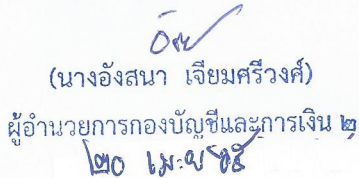 (นางอังสนา เจียมศรีวงศ์)
ผู้อำนวยการกองบัญชีและการเงิน ๒
๒๐ เม.ย